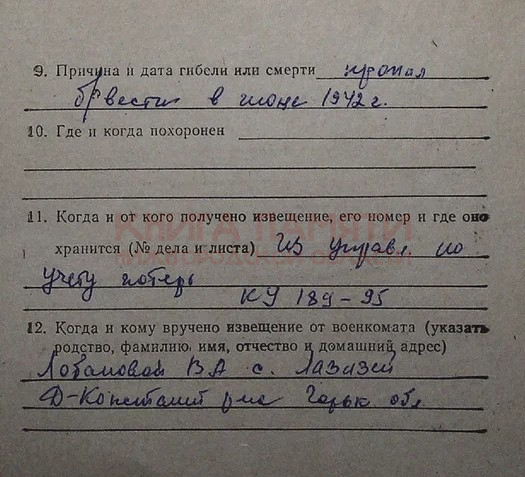 9. Причина и дата гибели или смерти пропал
б/вести в июне 1942 г.
10. Где и когда похоронен
11. Когда и от кого получено извещение, его номер и где оно
КНИГА ПАМЯТИ
хранится (№ дела и листа) Из управл. по
учету потерь
КУ 189-95
12. Когда и кому вручено извещение от военкомата (указать
родство, фамилию, имя, отчество и домашний адрес)
Лобановой В А с.
Д-Констант р-на Горьк обл